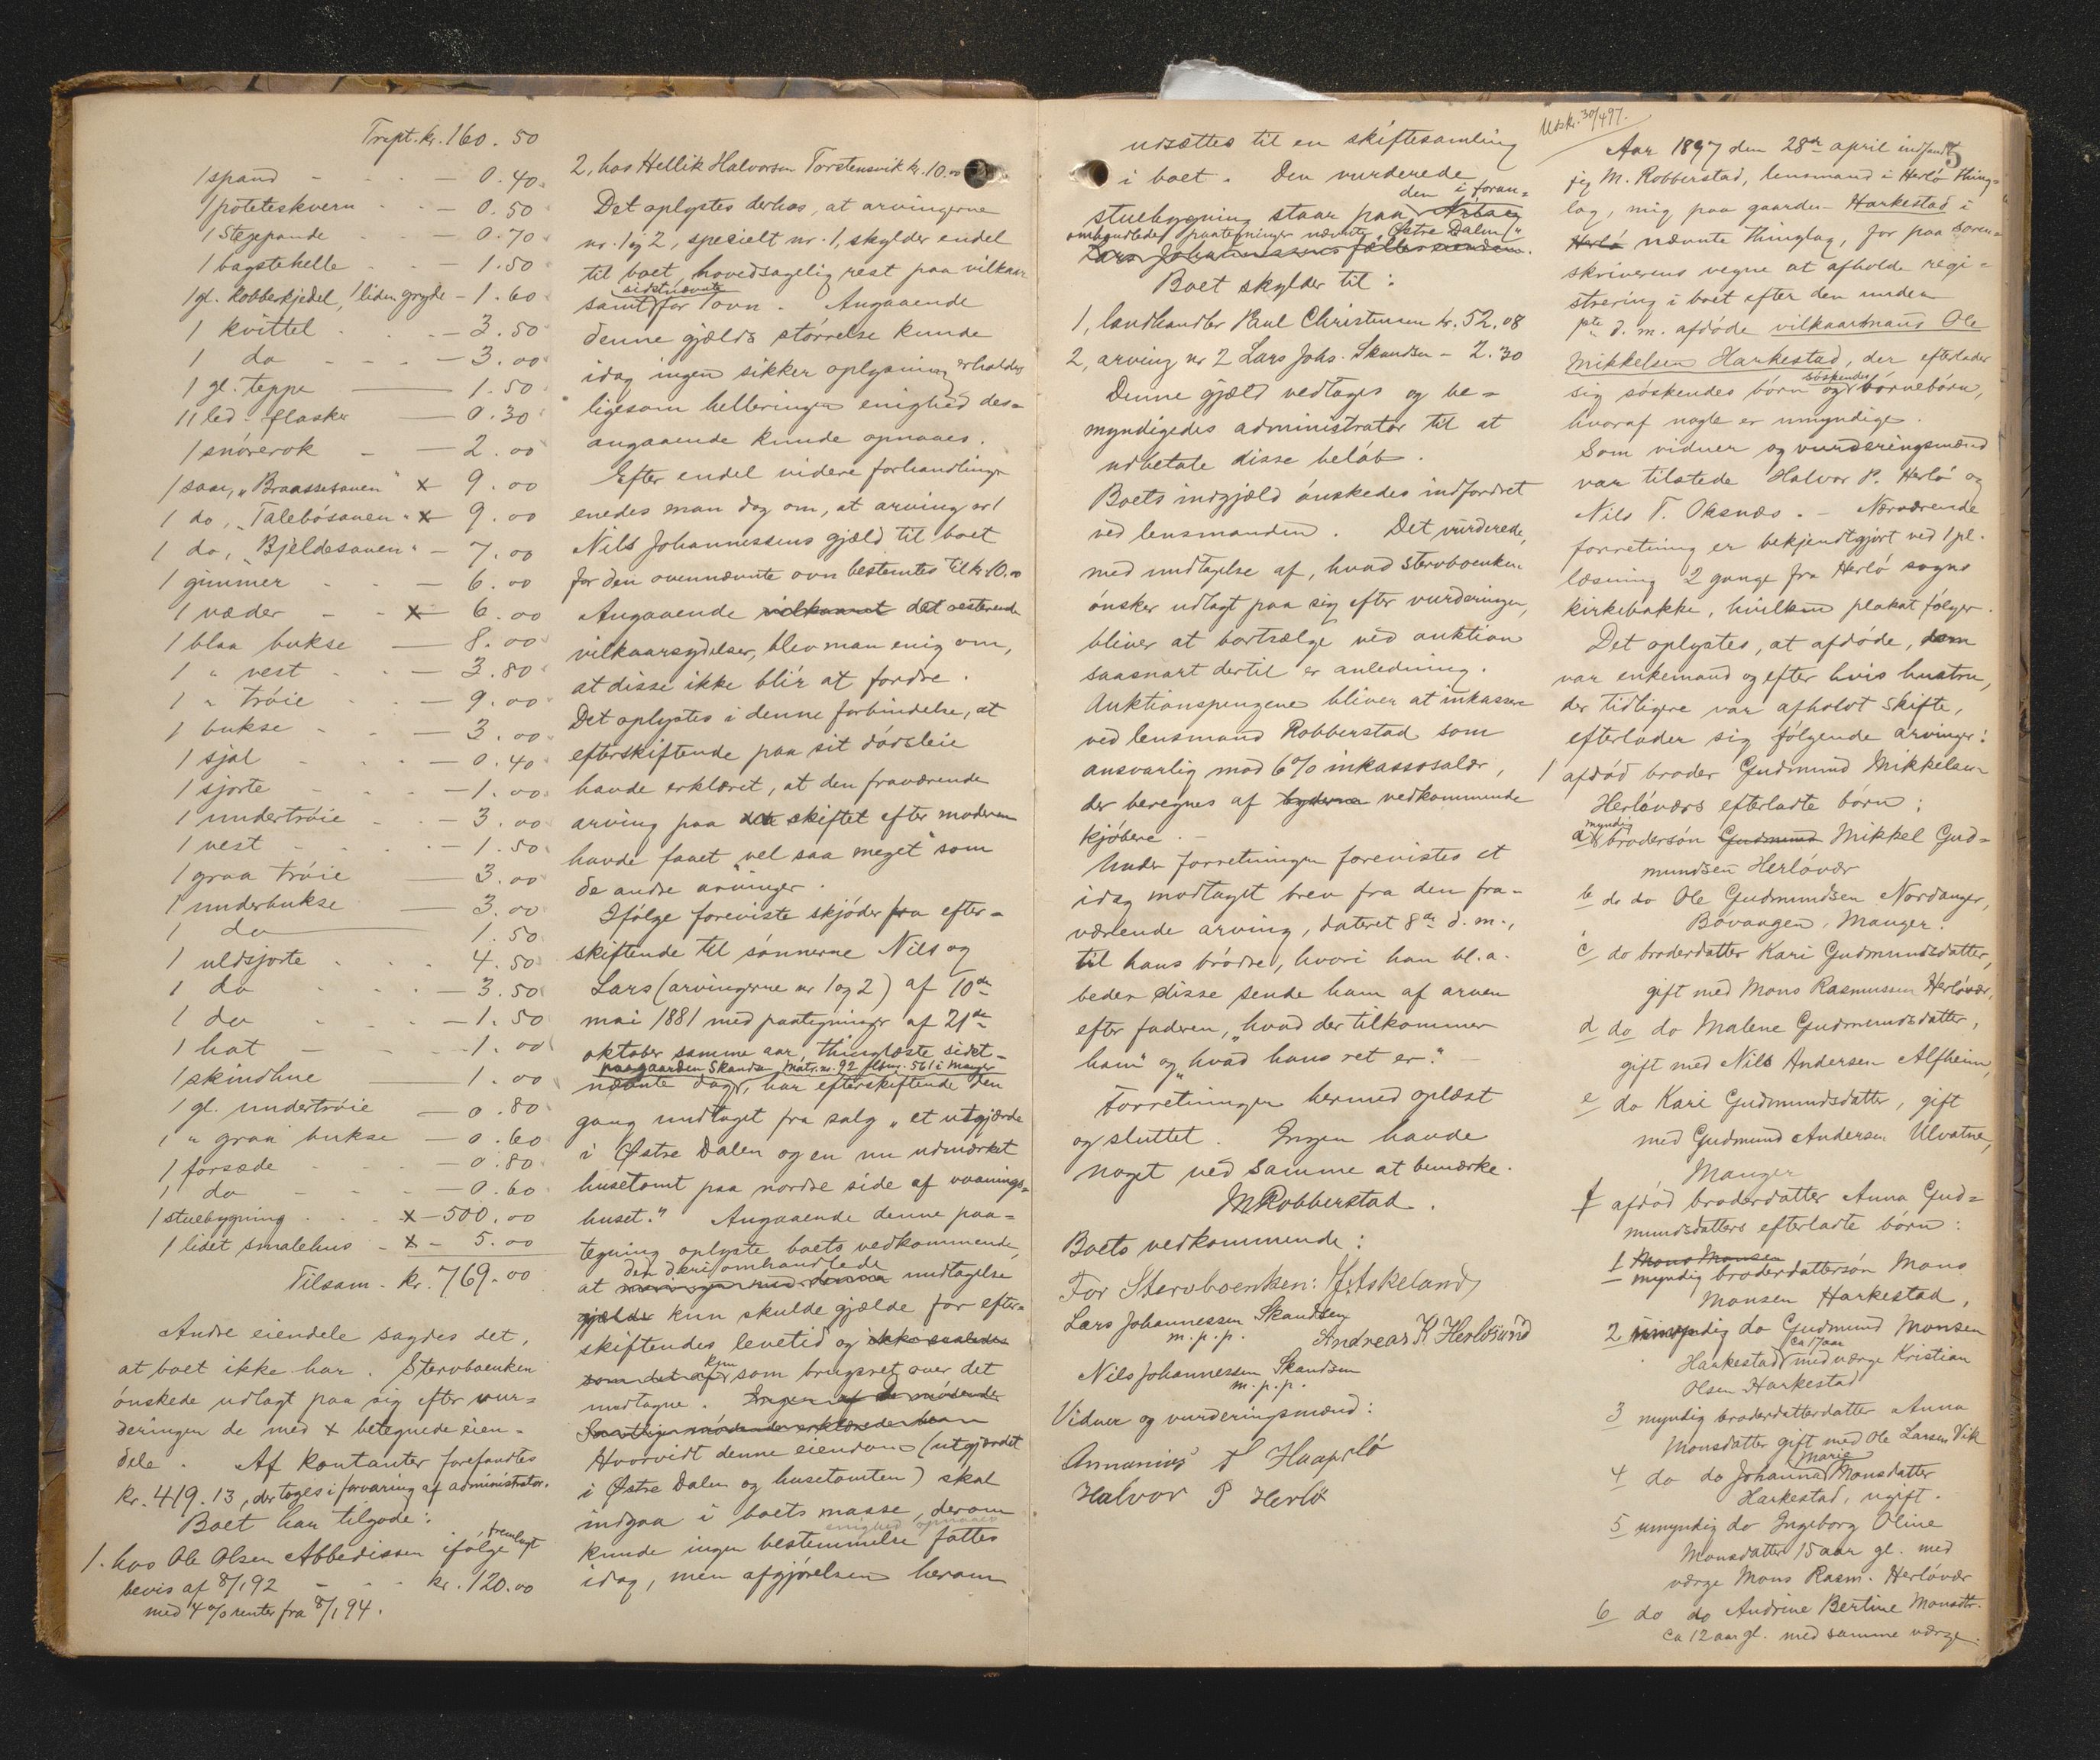 Trspt. kr. 160.50
1 spand - - - 0.40
1 poteteskvern - - - 0.50
1 stegepande - - 0.70
1 bagstehelle - - 1.50
1 gl. kobberkjedel, 1 liden gryde - 1.60
1 kvittel - - 3.50
1 do - - - 3.00
1 gl. teppe - 1.50
11 led. flasker - 0.30
1 snórerok - - 2.00
1 sau, "Braassesauen" x 9.00
1 do, "Talebósauen" x 9.00
1 do, "Bjeldesauen" - 7.00
1 gimmer - - - 6.00
1 væder - - x 6.00
1 blaa bukse - 8.00
1 " vest - - 3.80
1 " tróie - - 9.00
1 bukse - - - 3.00
1 sjal - - - 0.40
1 sjorte - - - 1.00
1 undertróie - - 3.00
1 vest - - - 1.50
1 graa tróie - 3.00
1 underbukse - 3.00
1 do - 1.50
1 uldsjorte - - 4.50
1 do - - - 3.50
1 do - - - 1.50
1 hat - - - 1.00
1 skindhue - 1.00
1 gl. undertróie - 0.80
1 " graa bukse - 0.60
1 forsæde - - 0.80
1 do - - - 0.60
1 stuebygning - - x - 500.00
1 lidet smalehus - x - 5.00
Tilsam. kr. 769.00
Andre eiendele sagdes det,
at boet ikke har. Stervboenken
ónskede udlagt paa sig efter vur-
deringen de med x betegnede eien-
dele. Af kontanter forefandtes
kr. 419.13, der toges i forvaring af administrator.
Boet har tilgode:
1. hos Ole Olsen Abbedissen ifólge fremlagt
bevis af 8/1 92 - - - kr. 120.00
med 4% renter fra 8/1 94.
2, hos Hellik Halvorsen Torstensvik kr. 10.00
Det oplystes derhos, at arvingerne
nr. 1 og 2, specielt nr. 1, skylder endel
til boet, hovedsagelig rest paa vilkaar
sidstnævnte
samt for 1 ovn. Angaaende
denne gjælds stórrelse kunde
idag ingen sikker oplysning erholdes
ligesom helleringen enighed des-
angaaende kunde opnaaes.
Efter endel videre forhandlinger
enedes man dog om, at arving nr 1
Nils Johannessens gjæld til boet
for den ovennævnte ovn bestemtes til kr. 10.00
Angaaende vilkaaret det resterende
vilkaarsydelser, blev man enig om,
at disse ikke blir at fordre.
Det oplystes i denne forbindelse, at
efterskiftende paa sit dódsleie
havde erklæret, at den fraværende
arving paa skiftet efter moderen
havde faaet "vel saa meget" som
de andre arvinger.
Ifólge foreviste skjóder fra efter-
skiftende til sónnerne Nils og
Lars (arvingerne nr 1 og 2) af 10de
mai 1881 med paategninger af 21de
oktober samme aar, thinglæste sidst-
paa gaarden Skandsen, Matr. nr. 92 i Manger
nævnte dag, har efterskiftende den
gang undtaget fra salg "et utgjærde
i Østre Dalen og en nu udmærket
hustomt paa nordre side af vaanings-
huset." Angaaende denne paa-
tegning oplyste boets vedkommende,
den deri omhandlede
at undtagelse
gjælder kun skulde gjælde for efter-
skiftendes levetid og ikke saaledes
kun som brugsret over det
undtagne. Ingen af de mødende
Samtlige mødende erklærede
Hvorvidt denne eiendom (utgjærdet
i Østre Dalen og hustomten) skal
indgaa i boets masse, derom
enighed opnaaes
kunde ingen bestemmelse fattes
idag, men afgjórelsen herom
udsættes til en skiftesamling
i boet. Den vurderede
den i foran-
stuebygning staar paa
omhandlede paategninger nævnte Østre Dalen"
Lars Johannessens fælleseiendom.
Boet skylder til:
1, landhandler Paul Christensen kr. 52.08
2, arving nr 2 Lars Johs. Skandsen - 2.30
Denne gjæld vedtoges og be-
myndigedes administrator til at
udbetale disse beløb.
Boets indgjæld ónskedes indfordret
ved lensmanden. Det vurderede,
med undtagelse af, hvad stervboenken
ónsker udlagt paa sig efter vurderingen,
bliver at bortsælge ved auktion
saasnart dertil er anledning.
Auktionspengene bliver at inkassere
ved lensmand Robberstad som
ansvarlig mod 6% inkassosalær,
der beregnes af byderne vedkommende
kjóbere. -
Under forretningen forevistes et
idag modtaget brev fra den fra-
værende arving, dateret 8de d. m.,
til hans bródre, hvori han bl. a.
beder disse sende ham af arven
efter faderen, "hvad der tilkommer
ham" og "hvad hans ret er." -
Forretningen hermed oplæst
og sluttet. Ingen havde
noget ved samme at bemærke.
M Robberstad.
Boets vedkommende:
For Stervboenken: Askeland
Lars Johannessen Skandsen
m. p. p. Andreas K Herlósund
Nils Johannessen Skandsen
m. p. p.
Vidner og vurderingsmænd:
Halvor P Herlø
Udskr. 30/4 97.
5
Aar 1897 den 28de april indfandt
jeg M. Robberstad, lensmand i Herló thing-
lag, mig paa gaarden Harkestad i
Herló nævnte thinglag, for paa soren-
skriverens vegne at afholde regi-
strering i boet efter den under
d. m. afdóde vilkaarsmand Ole
Mikkelsen Harkestad, der efterlader
sóskendes
sig sóskendes bórn og bórnebórn,
hvoraf nogle er umyndige.
Som vidner og vurderingsmænd
var tilstede Halvor P. Herló og
Nils T. Oksnæs. - Nærværende
forretning er bekjendtgjort ved 1 pl.
læsning 2 gange fra Herló sogns
kirkebakke, hvilken plakat fólger.
Det oplystes, at afdóde, som
var enkemand og efter hvis hustru,
der tidligere var afholdt skifte,
efterlader sig fólgende arvinger:
1 afdód broder Gudmund Mikkelsen
Herlóværs efterladte bórn:
myndig
a brodersón Gudmund Mikkel Gud-
mundsen Herlóvær
b do do Ole Gudmundsen Nordanger,
Bóvaagen, Manger.
c do broderdatter Kari Gudmundsdatter,
gift med Mons Rasmussen Herlóvær,
d do do Malene Gudmundsdatter,
gift med Nils Andersen Alfheim,
e do Kari Gudmundsdatter, gift
med Gudmund Andersen Ulvatne,
Manger
f afdód broderdatter Anna Gud-
mundsdatters efterladte bórn:
1 Mons Monsen
myndig broderdattersón Mons
Monsen Harkestad,
2 umyndig do Gudmund Monsen
ca 17 aar
Harkestad med værge Kristian
Olsen Harkestad
3 myndig broderdatterdatter Anna
Monsdatter gift med Ole Larsen Vik
Marie
4 do do Johanna Monsdatter
Harkestad, ugift.
5 umyndig do Ingeborg Oline
Monsdatter 15 aar gl. med
værge Mons Rasm. Herlóvær
6 do do Andrine Bertine Monsdtr.
ca 12 aar gl. med samme værge.